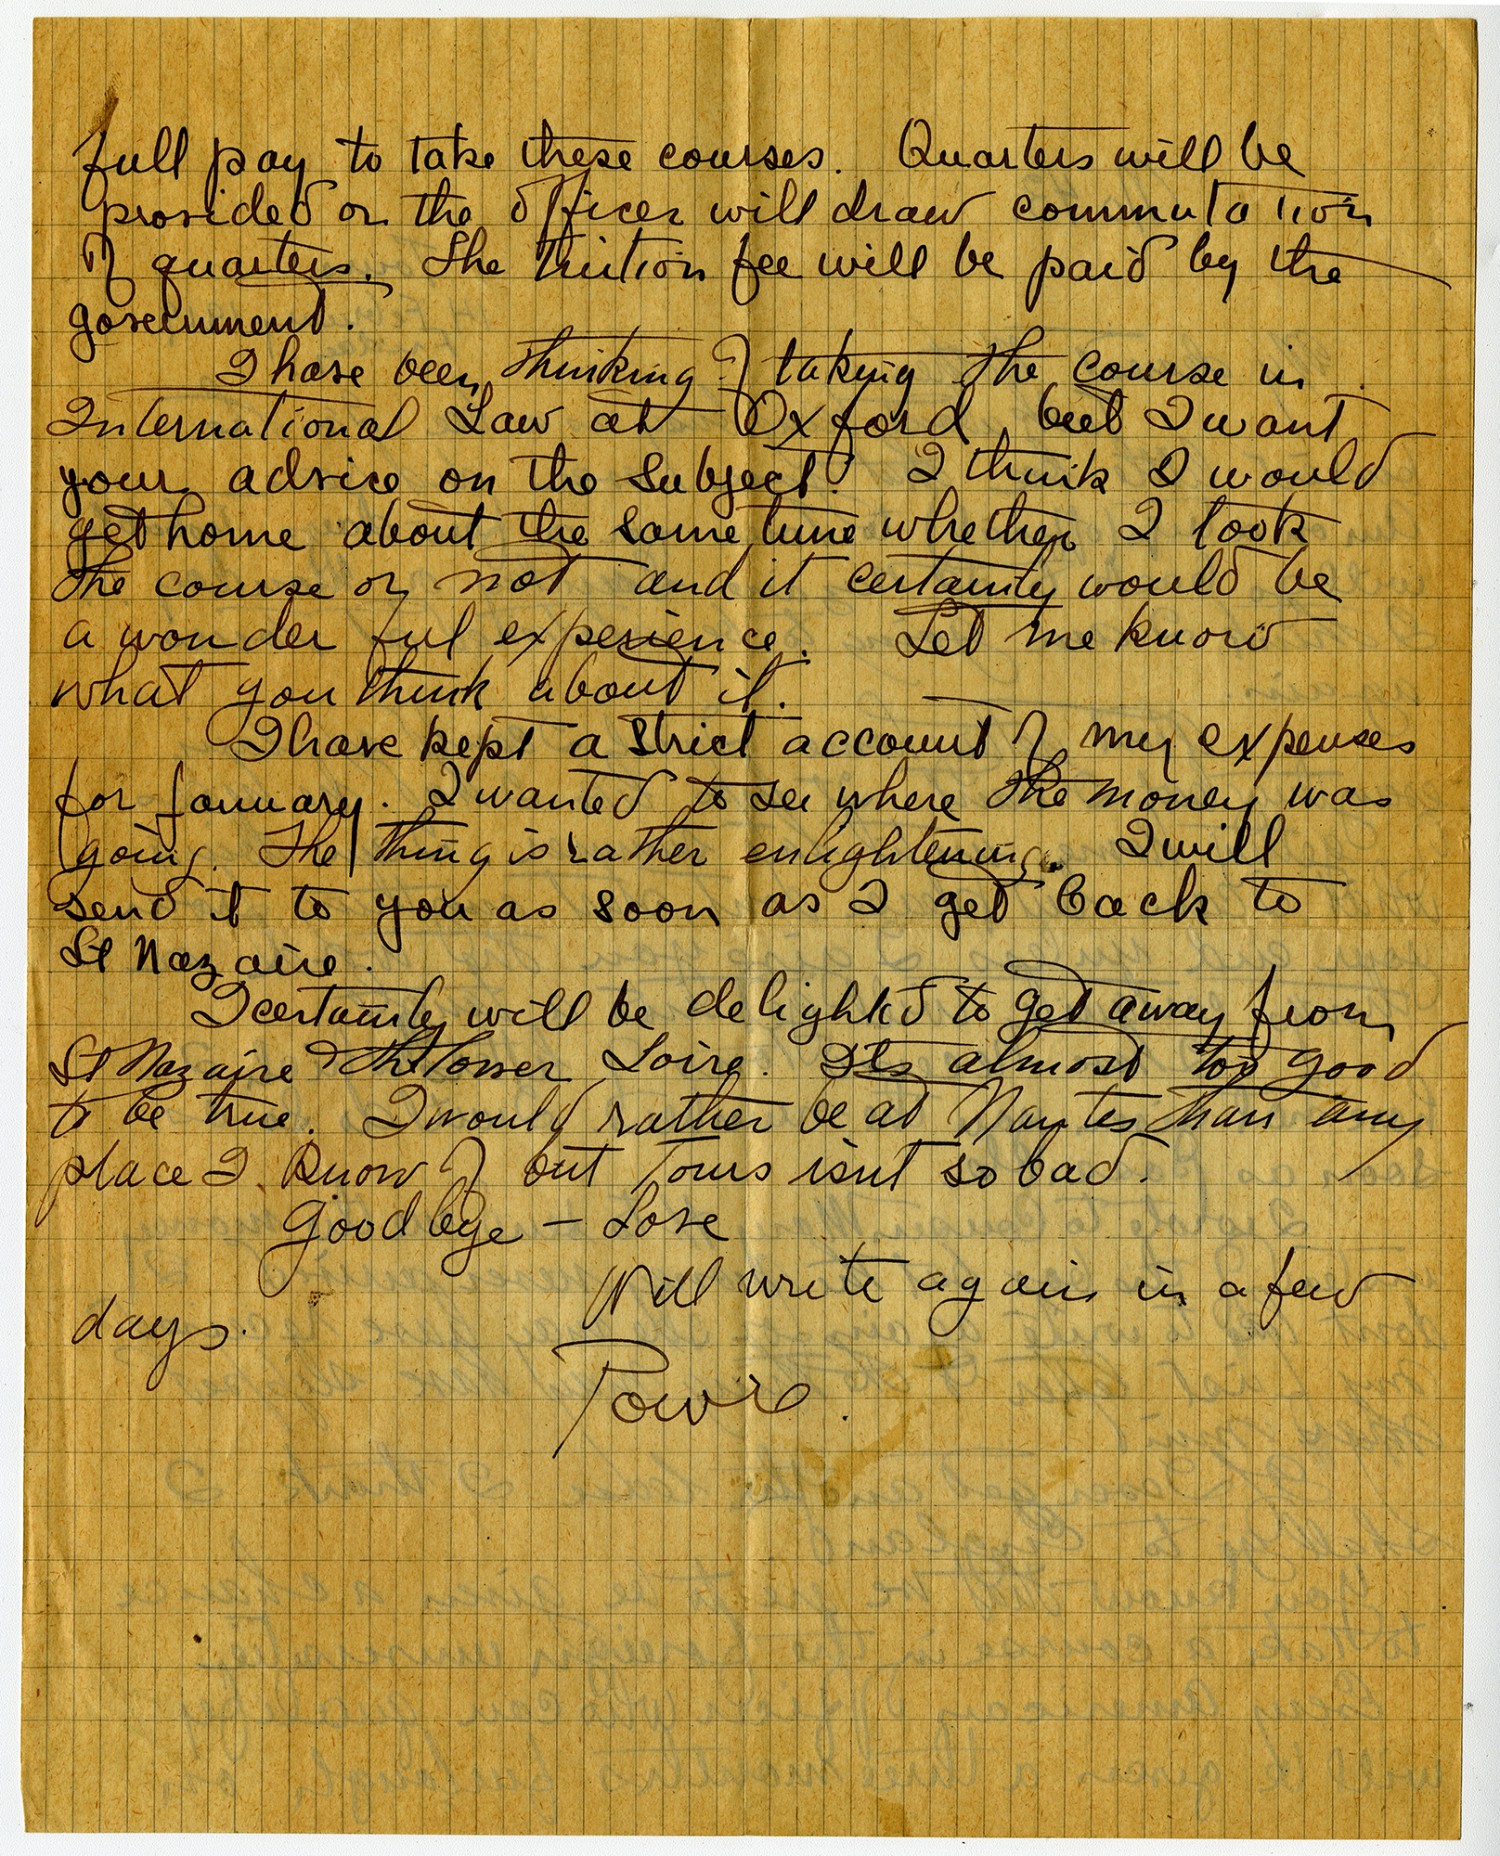 full pay to take these courses. Quarters will be
provided or the officer will draw commutation
of quarters. The tuition fee will be paid by the
government.
I have been thinking of taking the course in
International Law at Oxford but I want
your advice on the subject. I think I would
get home about the same time whether I took
the course or not and it certainly would be
a wonderful experience. Let me know
what you think about it.
I have kept a strict account of my expenses
for January. I wanted to see where the money was
going. The thing is rather enlightening. I will
send it to you as soon as I get back to
St Nazaire.
I certainly will be delighted to get away from
St Nazaire & the lower Loire. Its almost too good
to be true. I would rather be at Nantes than any
place I know of but Tours isn't so bad.
Goodbye – Love
Will write again in a few
days.